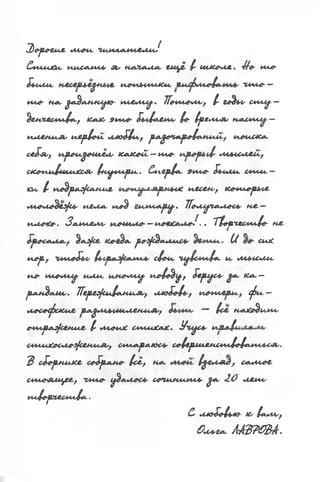 Дорогие мои читатели!
Стихи писать я начала ещё в школе. Но то
были несерьёзные попытки рифмовать что –
то на заданную тему. Потом, в годы сту –
денчества, как это бывает во время насту –
пления первой любви, разочарований, поиска
себя, произошёл какой – то прорыв мыслей,
скопившихся внутри. Сперва это были сти –
хи в подражание популярных песен, которые
молодёжь пела под гитару. Получалось не –
плохо. Затем пошло – поехало! . . Творчество не
бросала, даже когда рождались дети. И до сих
пор, чтобы выражать свои чувства и мысли
по тому или иному поводу, берусь за ка –
рандаш. Переживания, любовь, потери, фи –
лософские размышления, быт — всё находит
отражение в моих стихах. Учусь правилам
стихосложения, стараюсь совершенствоваться.
В сборнике собрано всё, на мой взгляд, самое
стоящее, что удалось сочинить за 20 лет
творчества.
С любовью к вам,
Ольга ЛАВРОВА.